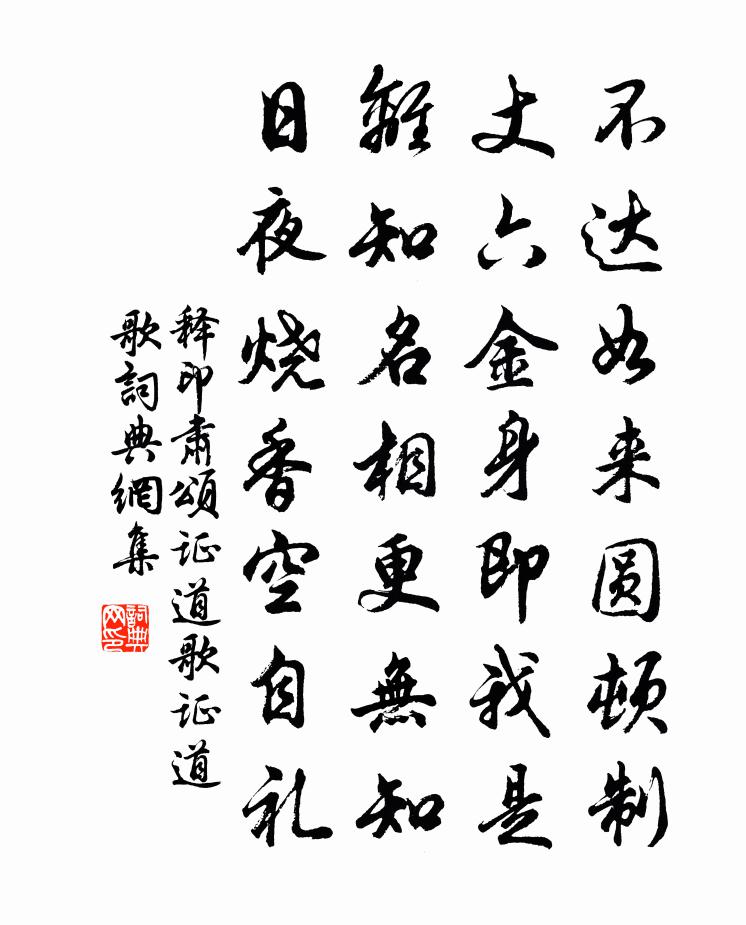 不达如来圆顿制
丈六金身即我是
虽知名相更無知
日夜烧香空自礼
释印肃颂证道歌证道
歌詞典網集
詞典網印